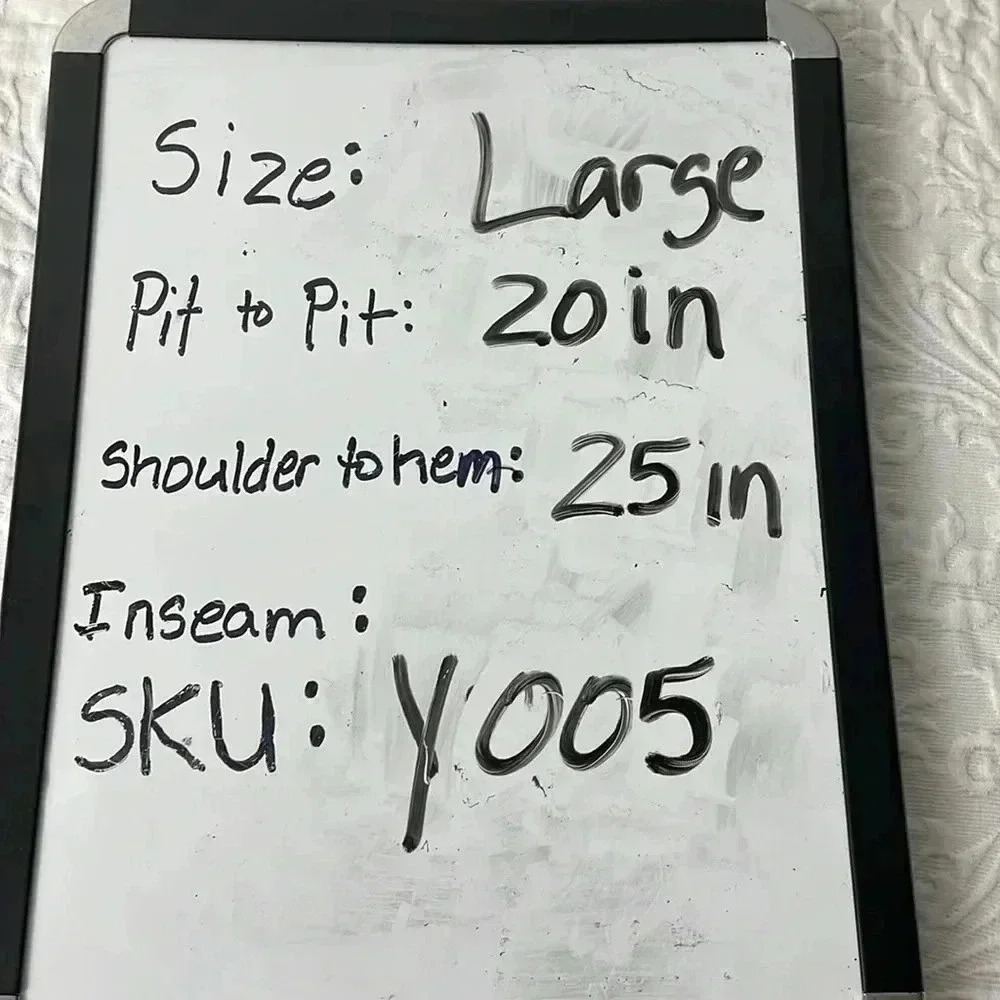 Size: Large
Pit to Pit: 20in
Shoulder to hem: 25in
Inseam:
SKU: Y005